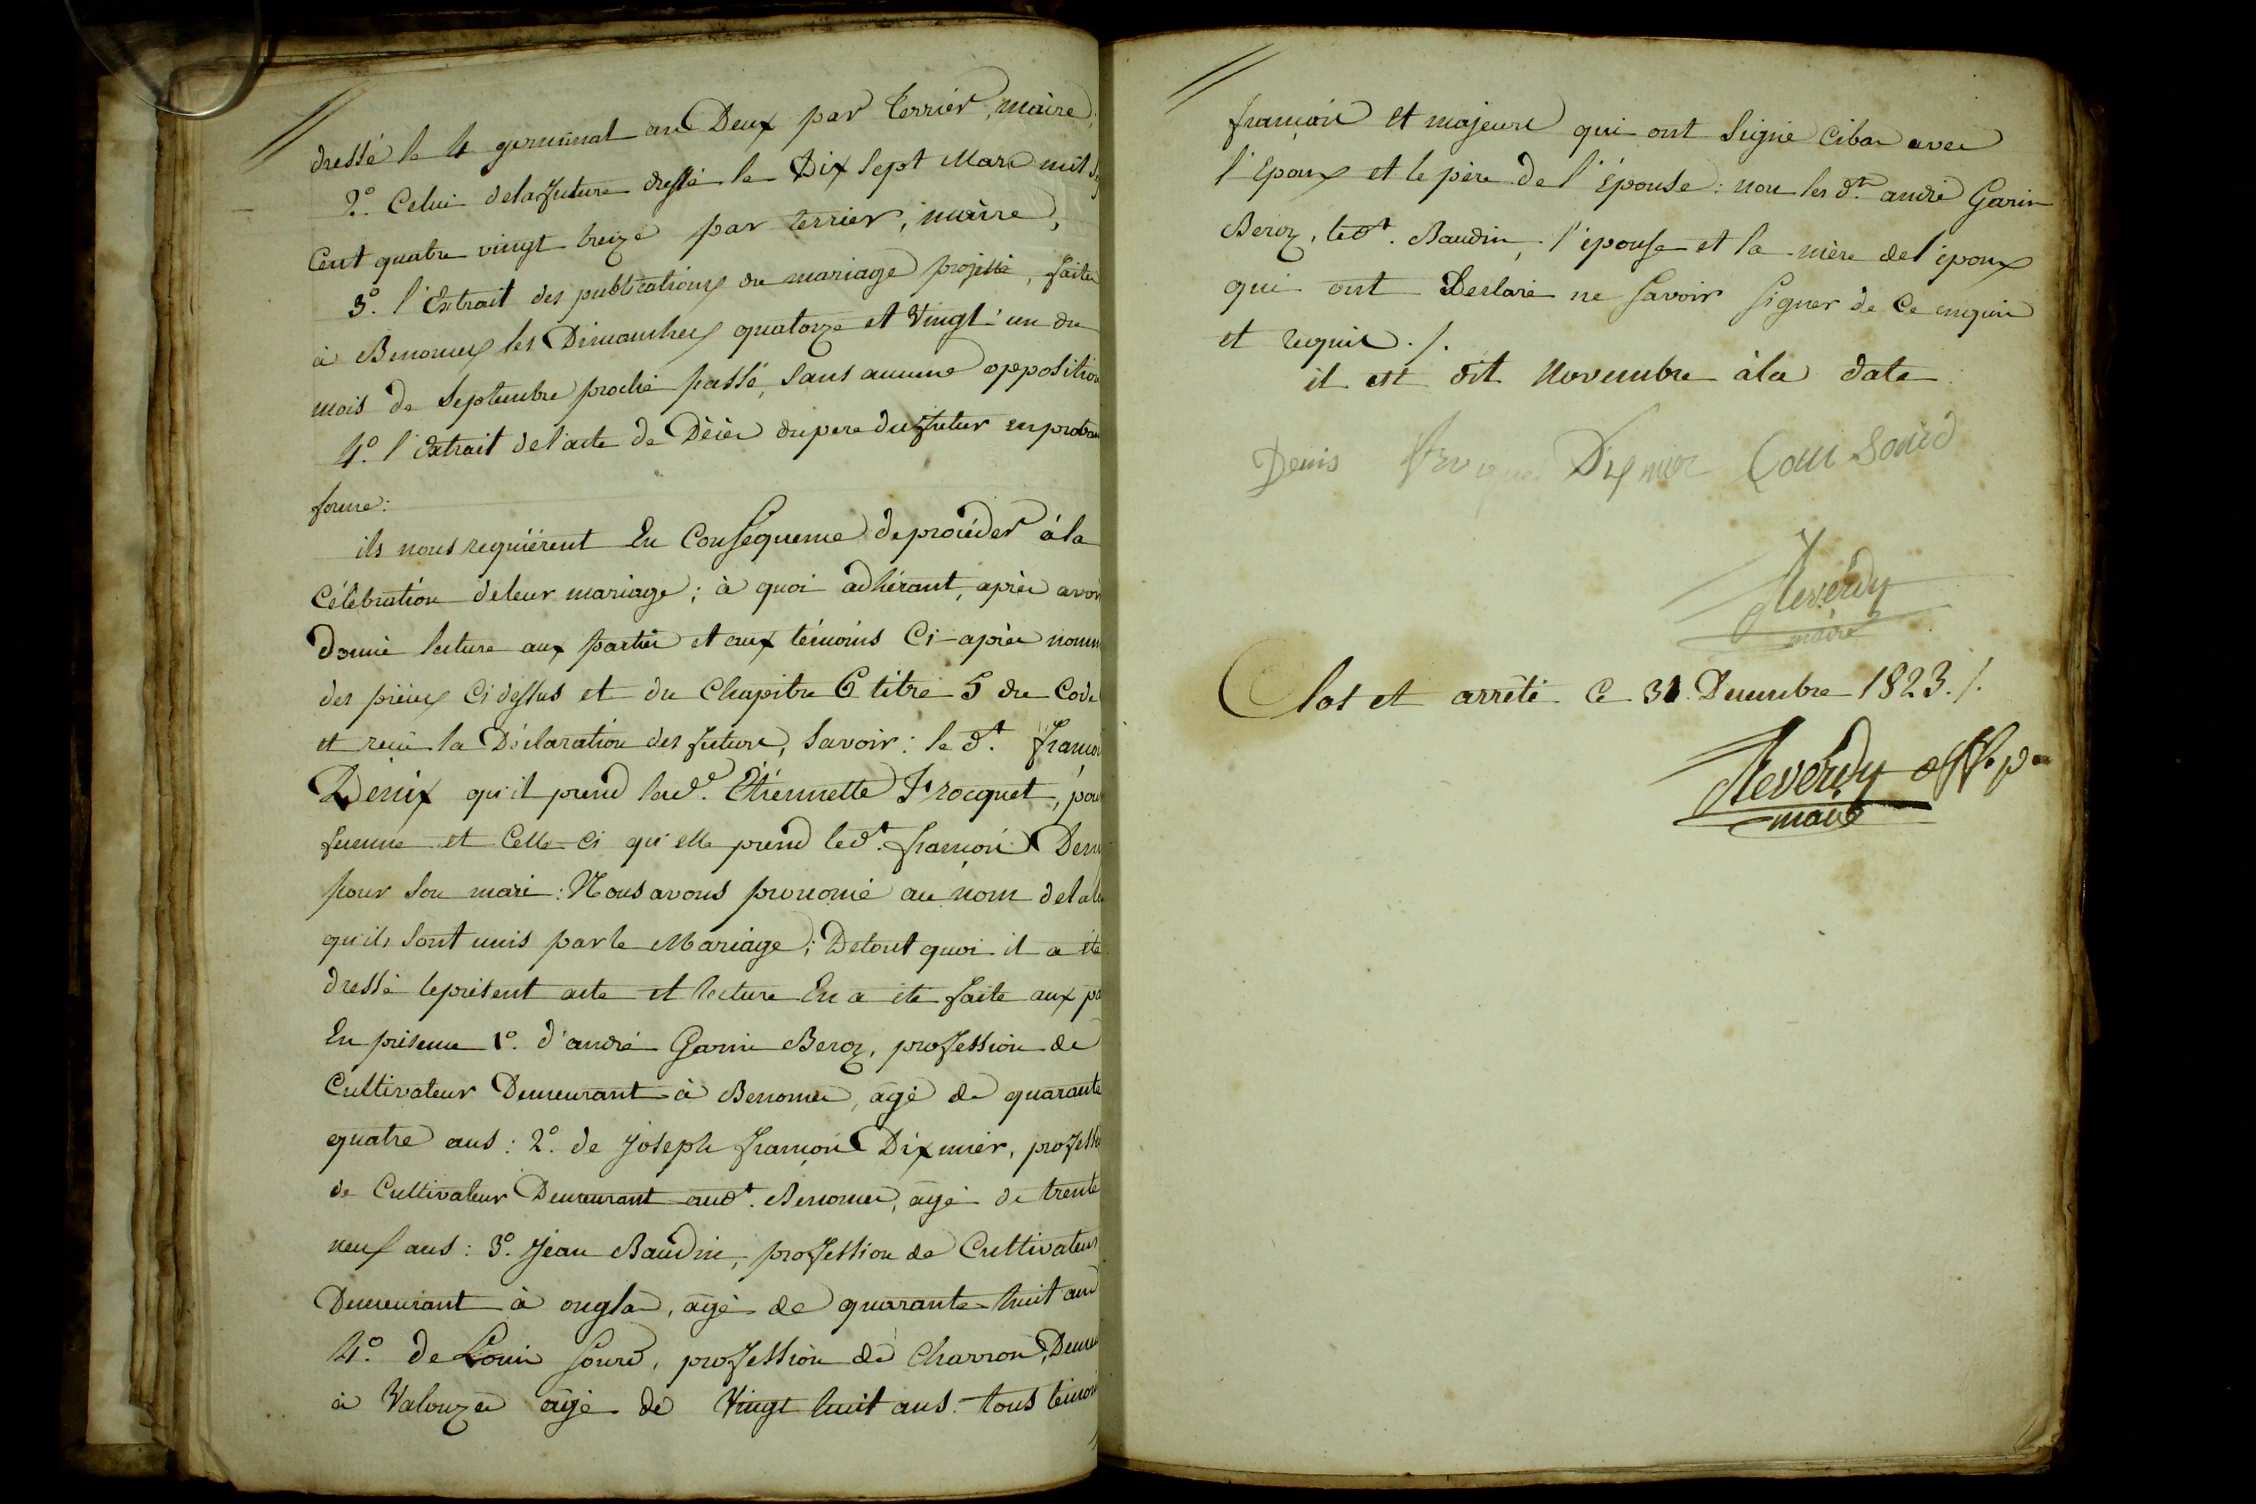 dressé le 4 germinal an Deux par terrier, maire;
2º. Celui dela future dressé le Dix Sept Mars mil
Cent quatre vingt treize par terrier, maire,
3º. l'Extrait des publications du mariage projetté, faites
à Benonces les Dimanches quatorze et Vingt-un du
mois de Septembre proche passé, sans aucune opposition
4º. l'Extrait del'acte de Décès du pere du futur en
forme:
ils nous requièrent En Conséquence de procéder à la
Célébration deleur mariage; à quoi adhérant, après avoir
donné lecture aux parties et aux témoins Ci-après
des pièces Ci dessus et du Chapitre 6 titre 5 du Code
et reçu la Déclaration des futurs, Savoir: le dt. françois
Dénix qu'il prend lade. Étiennette Frocquet, pour
femme et Celle-ci qu'elle prend ledt. françois
pour son mari: Nous avons prononcé au nom dela
qu'ils sont unis par le Mariage; Detout quoi il a été
dressé leprésent acte et lecture En a été faite aux
En présence 1º. d'andré Garin Beroz, profession de
Cultivateur Demeurant à Benonces, agé de quarante
quatre ans: 2º. de joseph françois Dixmier,
de Cultivateur Demeurant audt. Benonces, agé de trente
neuf ans: 3º. Jean Baudin, profession de Cultivateur
Demeurant à onglas, agé de quarante-huit ans
4º. de Louis Sourd, profession de Charron,
à Valouze agé de Vingt huit ans. tous
françois et majeurs qui ont Signé Cibas avec
l'Époux et le père de l'Épouse: non les dts. andré Garin
Beroz, ledt. Baudin, l'épouse et la mère del'époux
qui ont Déclaré ne Savoir Signer de Ce enquis
et requis ./.
il est dit Novembre àla date
Denis Dixmier Louis Sourd
Reverdy
maire
Clos et arrêté Ce 31 Decembre 1823./.
Reverdy
maire